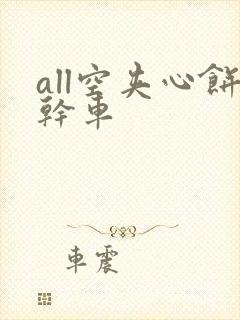 all空夹心餅
幹車
車震